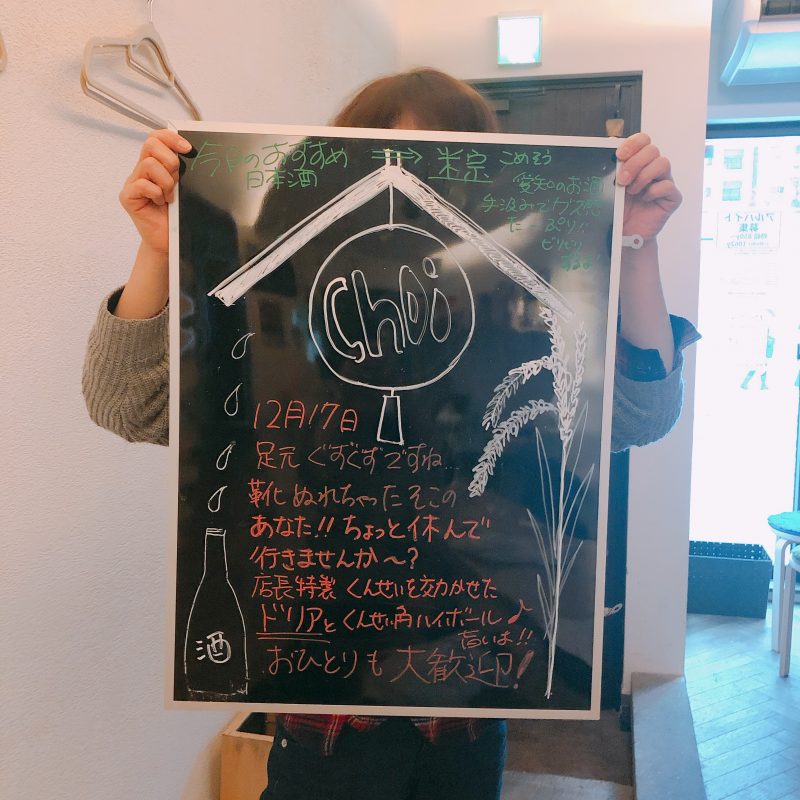 今日のおすすめ
日本酒
⇒
米宗 こめそう
愛知のお酒
手汲みでガス感
たーっぷり!!
ピリピリ
するよ!
Choi
12月17日
足元ぐずぐずですね...
靴ぬれちゃったそこの
あなた!! ちょっと休んで
行きませんか〜?
店長特製 くんせいを効かせた
ドリアとくんせい角ハイボール♪
旨いよ!!
おひとりも大歓迎!
酒
アルバイト
募集